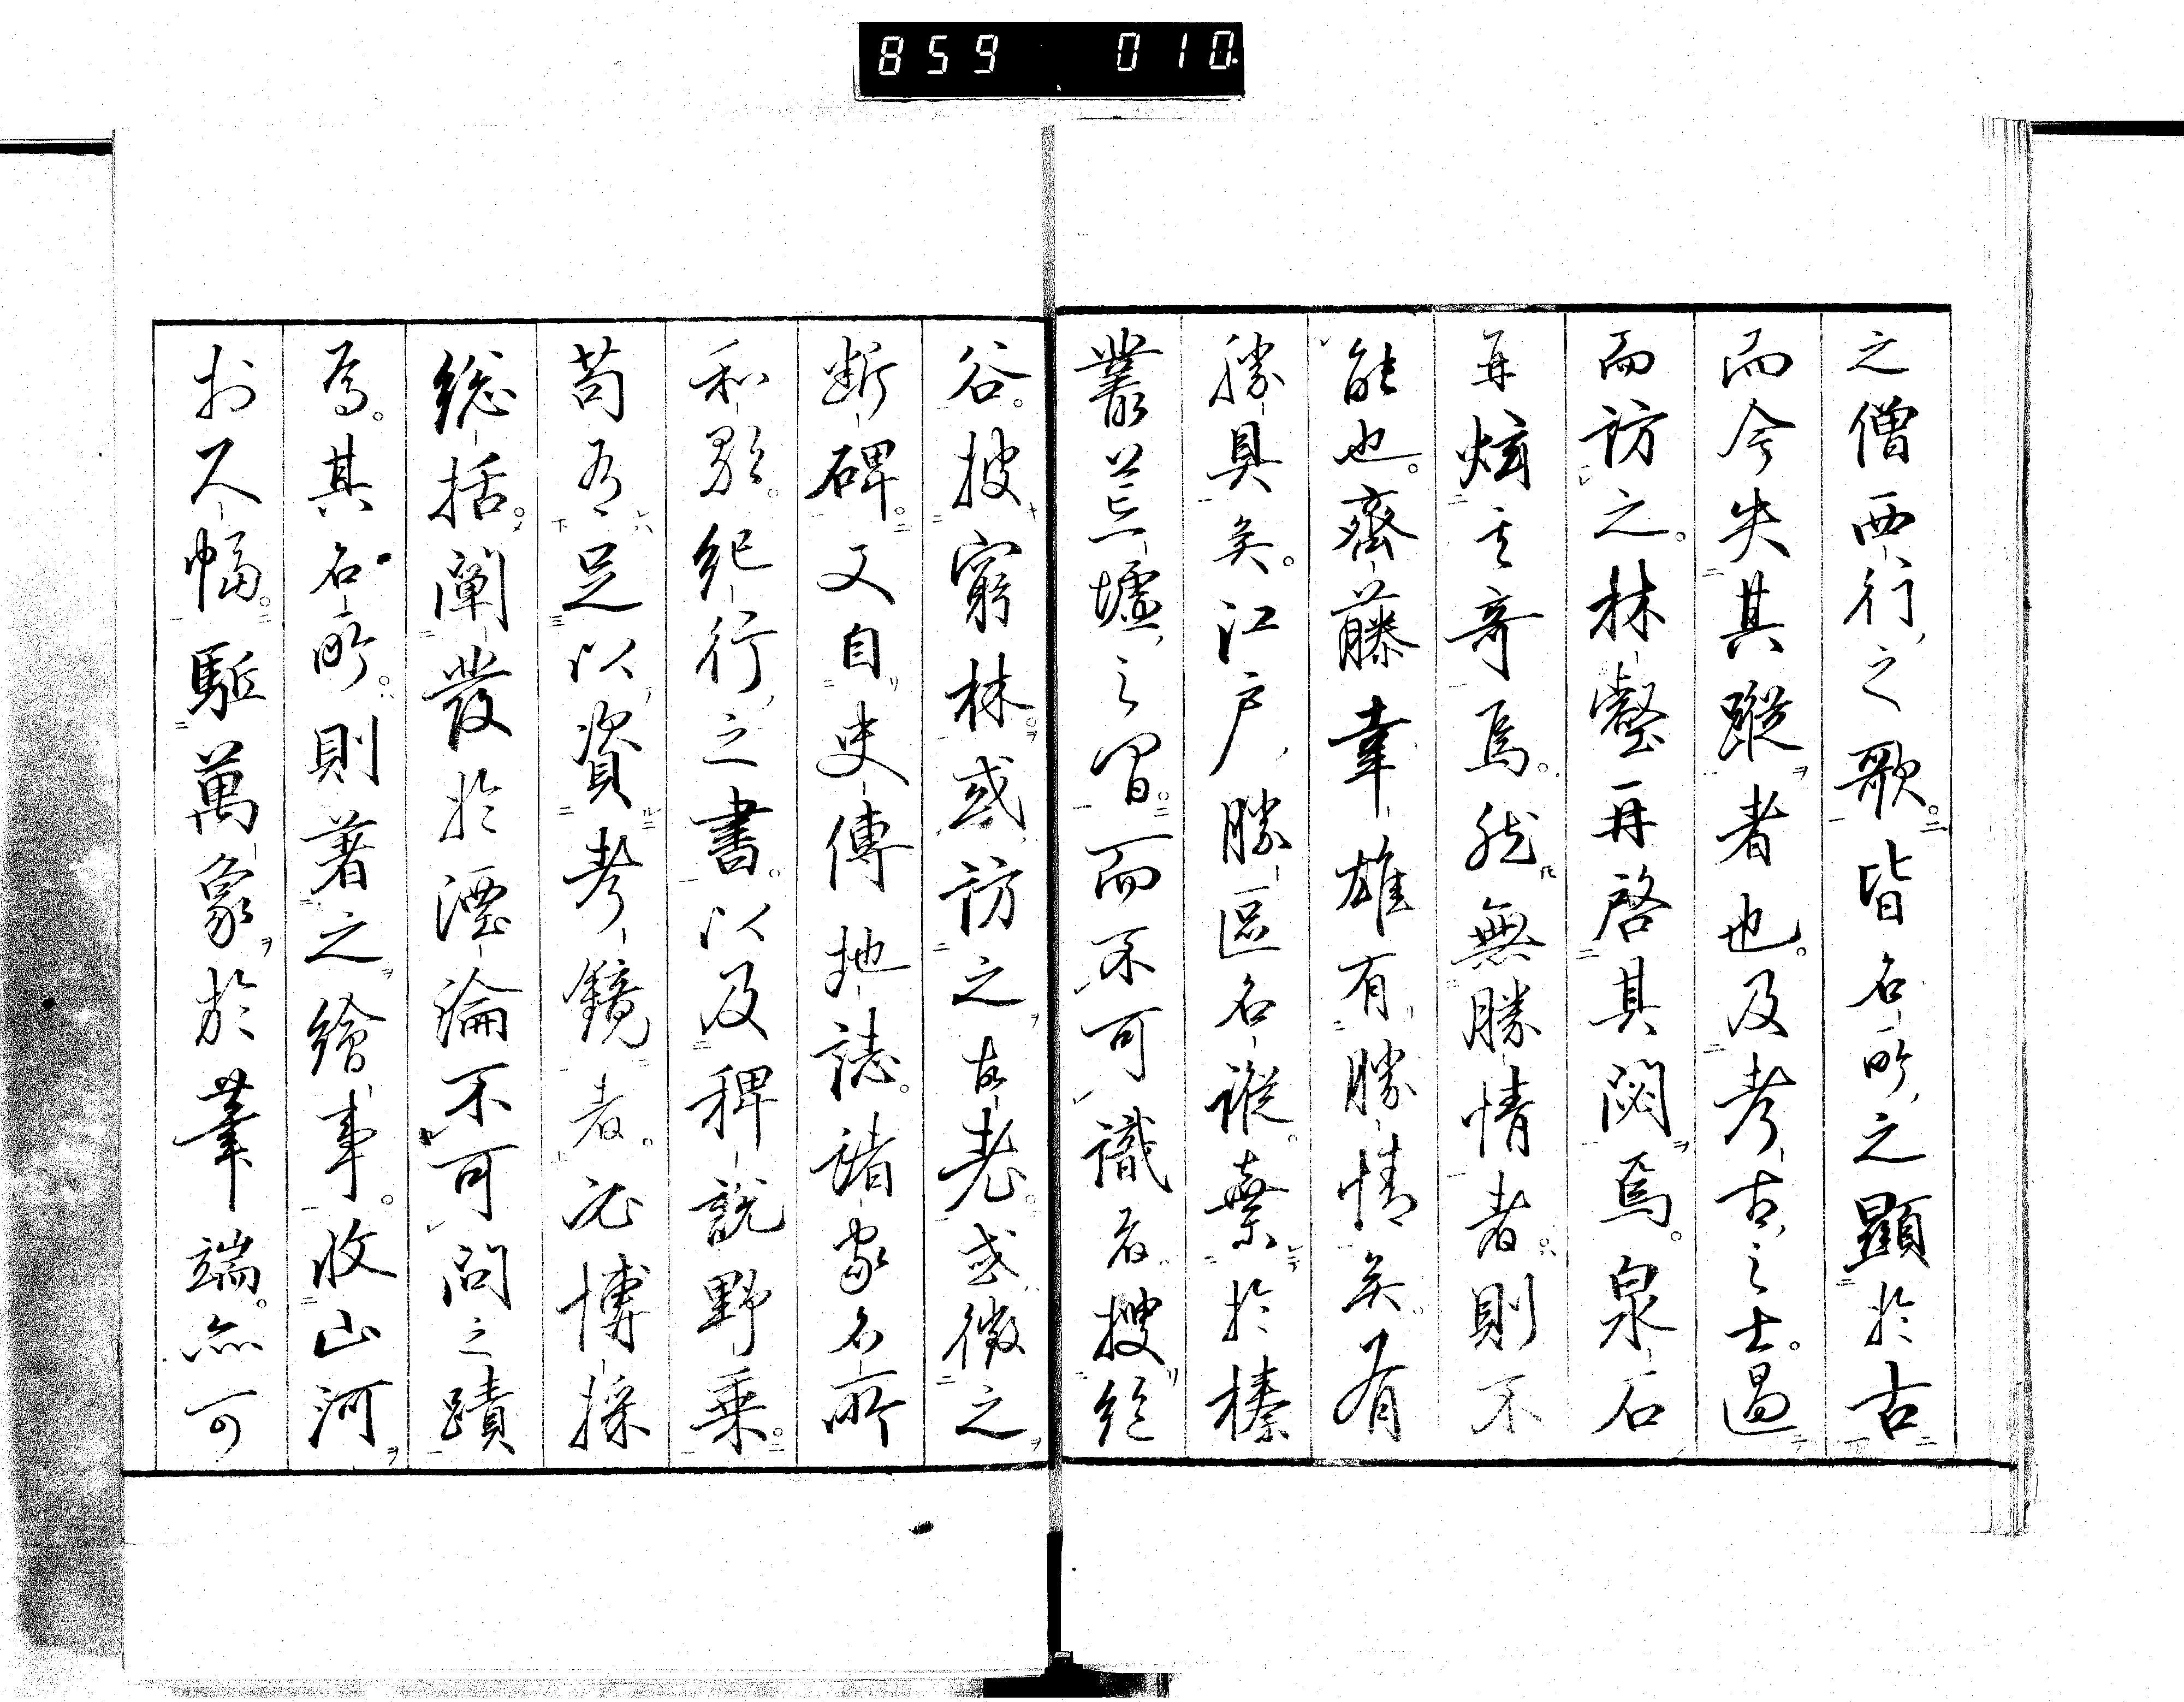 859 010
之僧西行之歌皆名所之顯於古
而今失其蹤者也及考古之士過
而訪之林壑再啓其閟焉泉石
再炫其奇焉然無勝情者則不
能也齋藤幸雄有勝情矣有
勝具矣江戶勝區名蹤棄於榛
叢荒墟之間而不可識者搜絕
谷披窮林或訪之故老或徵之
斷碑又自史傳地誌諸家名所
和歌紀行之書以及稗說野乘
苟有足以資考鏡者必博採
總括闡發於湮淪不可問之蹟
焉其名所則著之繪事收山河
於尺幅駈萬象於筆端亦可